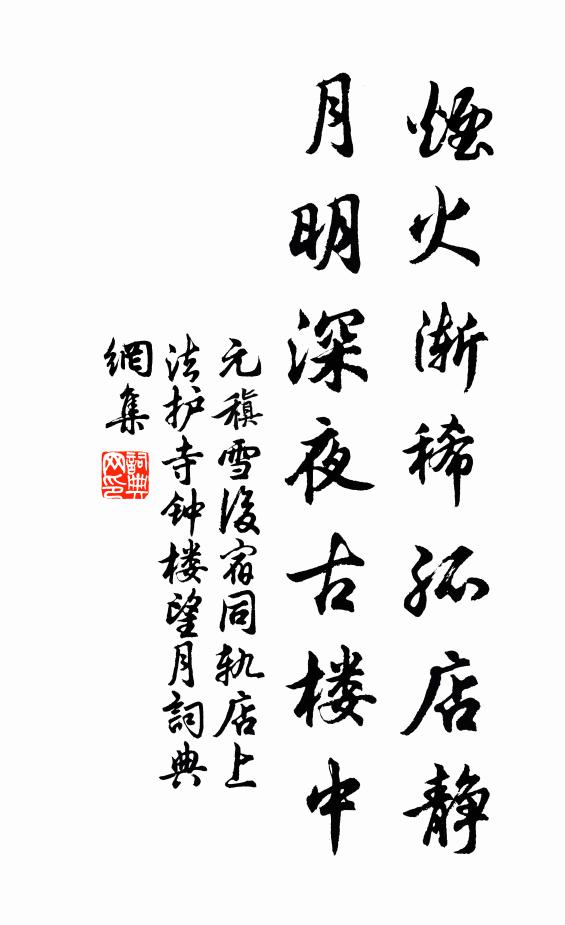 煙火渐稀孤店静
月明深夜古楼中
元稹雪後宿同轨店上
法护寺钟楼望月詞典
網集
詞典
网印